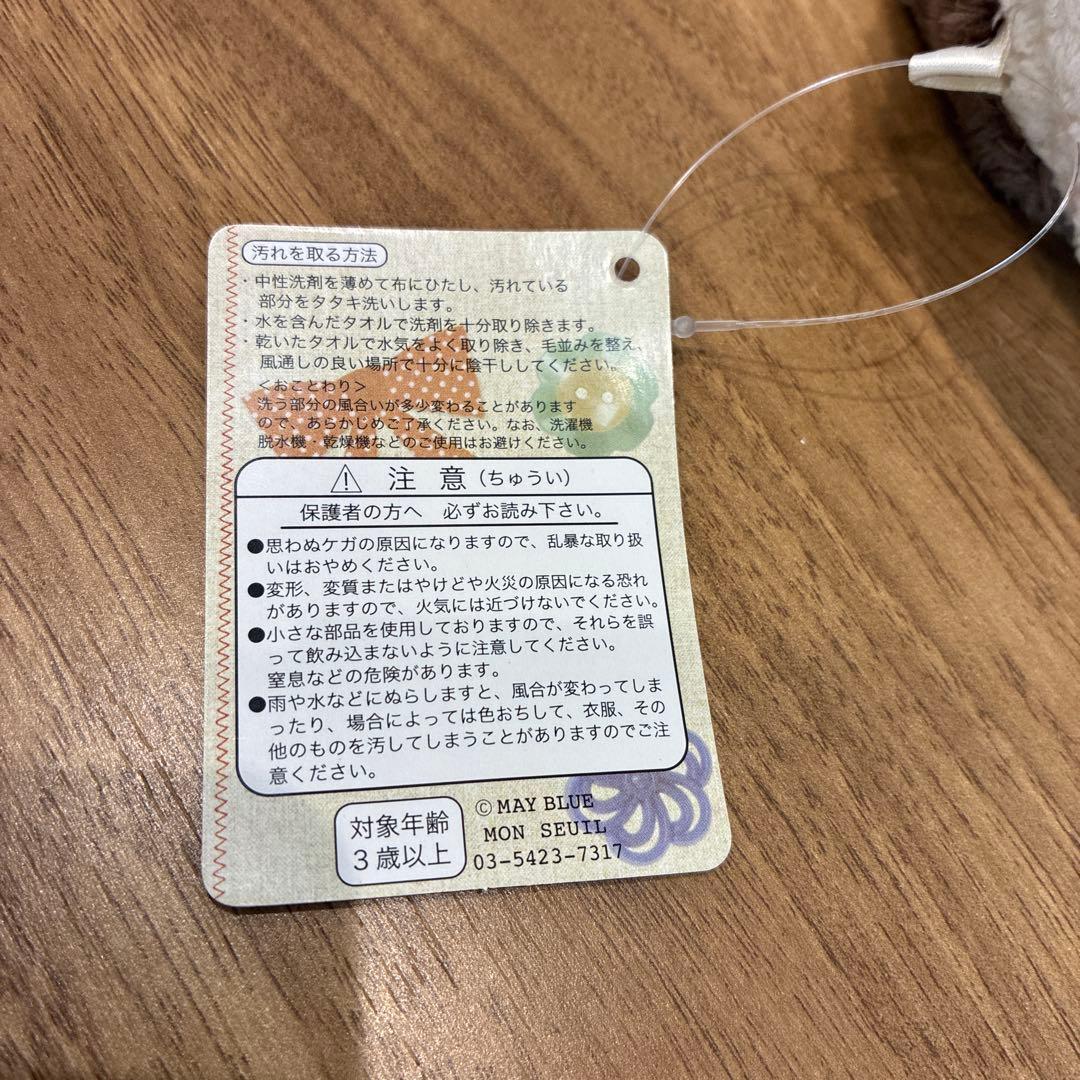 汚れを取る方法
・中性洗剤を薄めて布にひたし、汚れている
部分をタタキ洗いします。
・水を含んだタオルで洗剤を十分取り除きます。
・乾いたタオルで水気をよく取り除き、毛並みを整え、
風通しの良い場所で十分に陰干ししてください。
＜おことわり＞
洗う部分の風合いが多少変わることがあります
ので、あらかじめご了承ください。なお、洗濯機
脱水機・乾燥機などのご使用はお避けください。
⚠ 注意（ちゅうい）
保護者の方へ　必ずお読み下さい。
●思わぬケガの原因になりますので、乱暴な取り扱
いはおやめください。
●変形、変質またはやけどや火災の原因になる恐れ
がありますので、火気には近づけないでください。
●小さな部品を使用しておりますので、それらを誤
って飲み込まないように注意してください。
窒息などの危険があります。
●雨や水などにぬらしますと、風合が変わってしま
ったり、場合によっては色おちして、衣服、その
他のものを汚してしまうことがありますのでご注
意ください。
対象年齢
3歳以上
©MAY BLUE
MON SEUIL
03-5423-7317